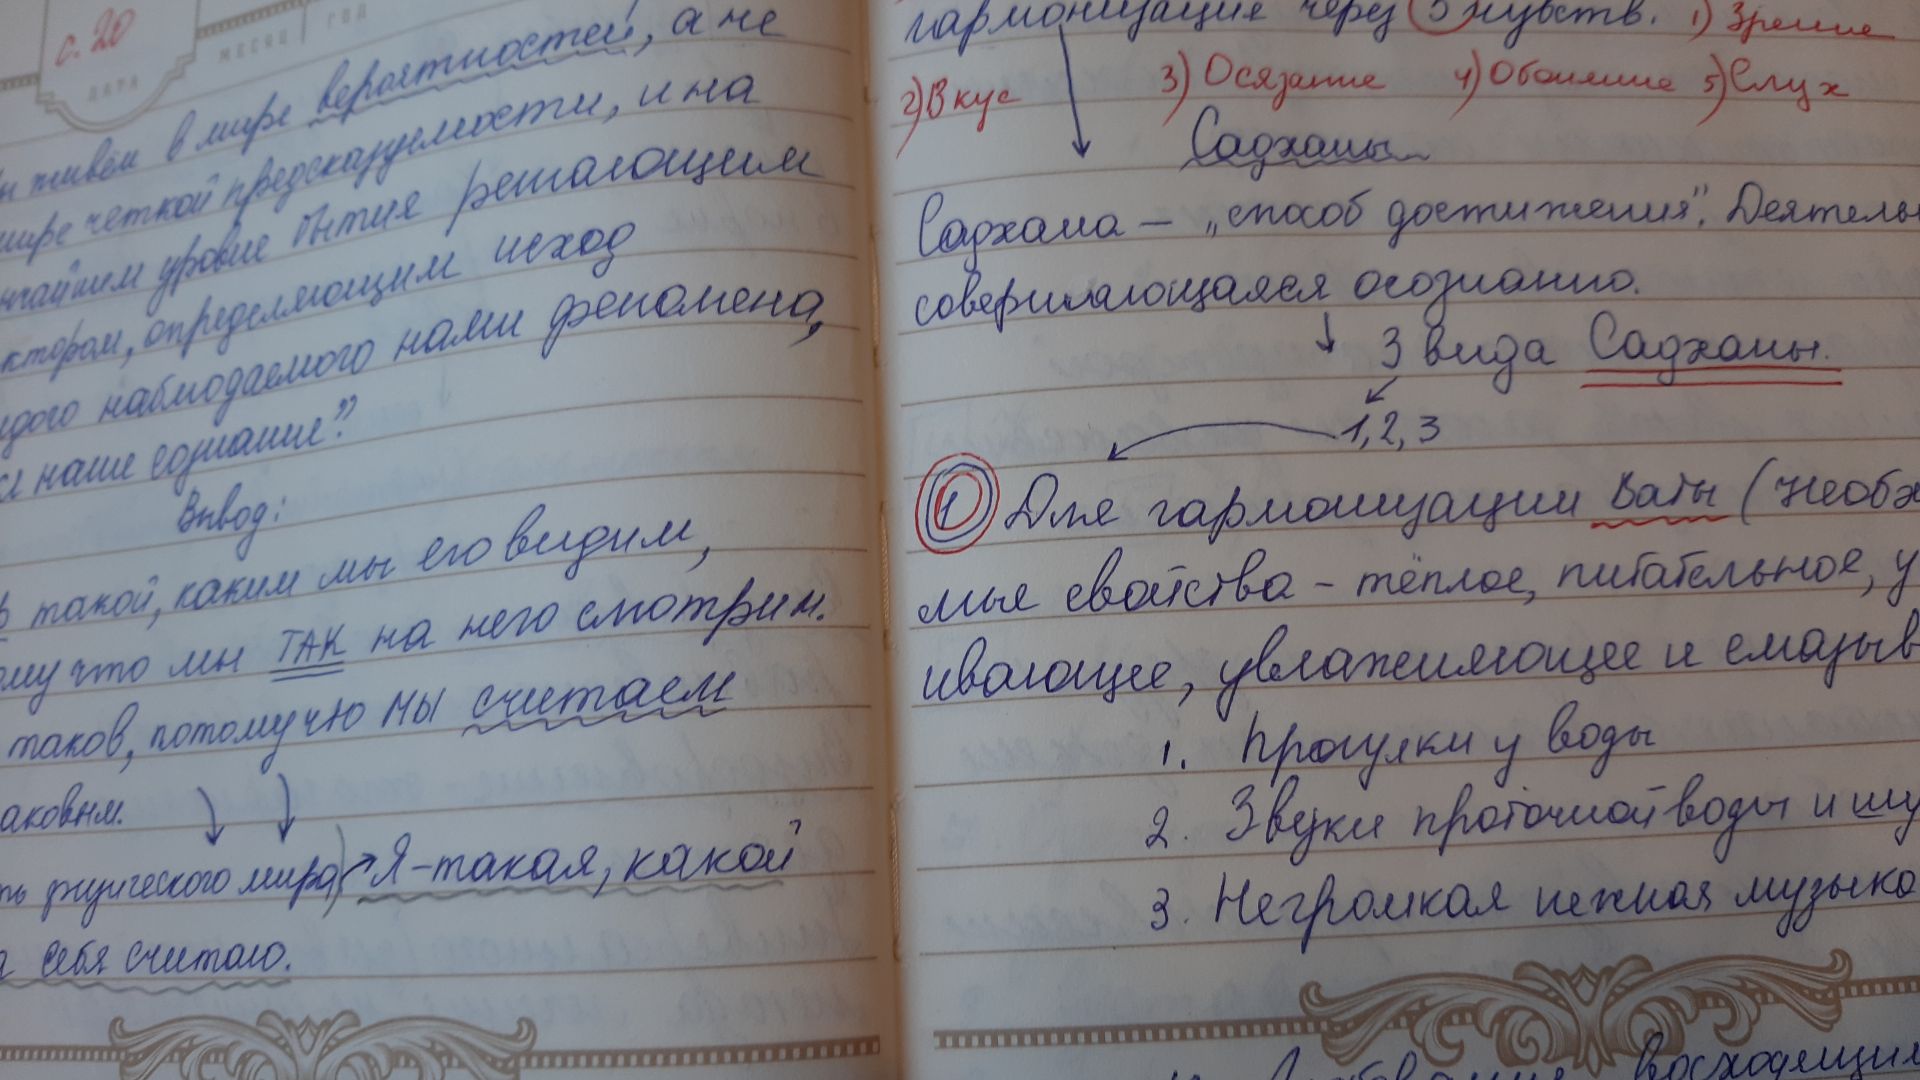 с. 20
ДАТА
МЕСЯЦ
ГОД
живём в мире вероятностей, а не
мире четкой предсказуемости, и на
уровне бытия решающим
определяющим исход
наблюдаемого нами феномена,
наше сознание".
Вывод:
такой, каким мы его видим,
что мы ТАК на него смотрим.
таков, потому что мы считаем
физического мира) Я-такая, какой
себя считаю.
гармонизация через 5 чувств. 1) Зрение
2) Вкус 3) Осязание 4) Обоняние 5) Слух
Садханы
Садхана – „способ достижения". Деятель
совершающаяся осознанно.
3 вида Садханы.
1, 2, 3
1 Для гармонизации Ваты (необх
мые свойства – тёплое, питательное, у
ивающее, увлажняющее и смазыв
1. Прогулки у воды
2. Звуки проточной воды и шу
3. Негромкая нежная музыка
восходящим